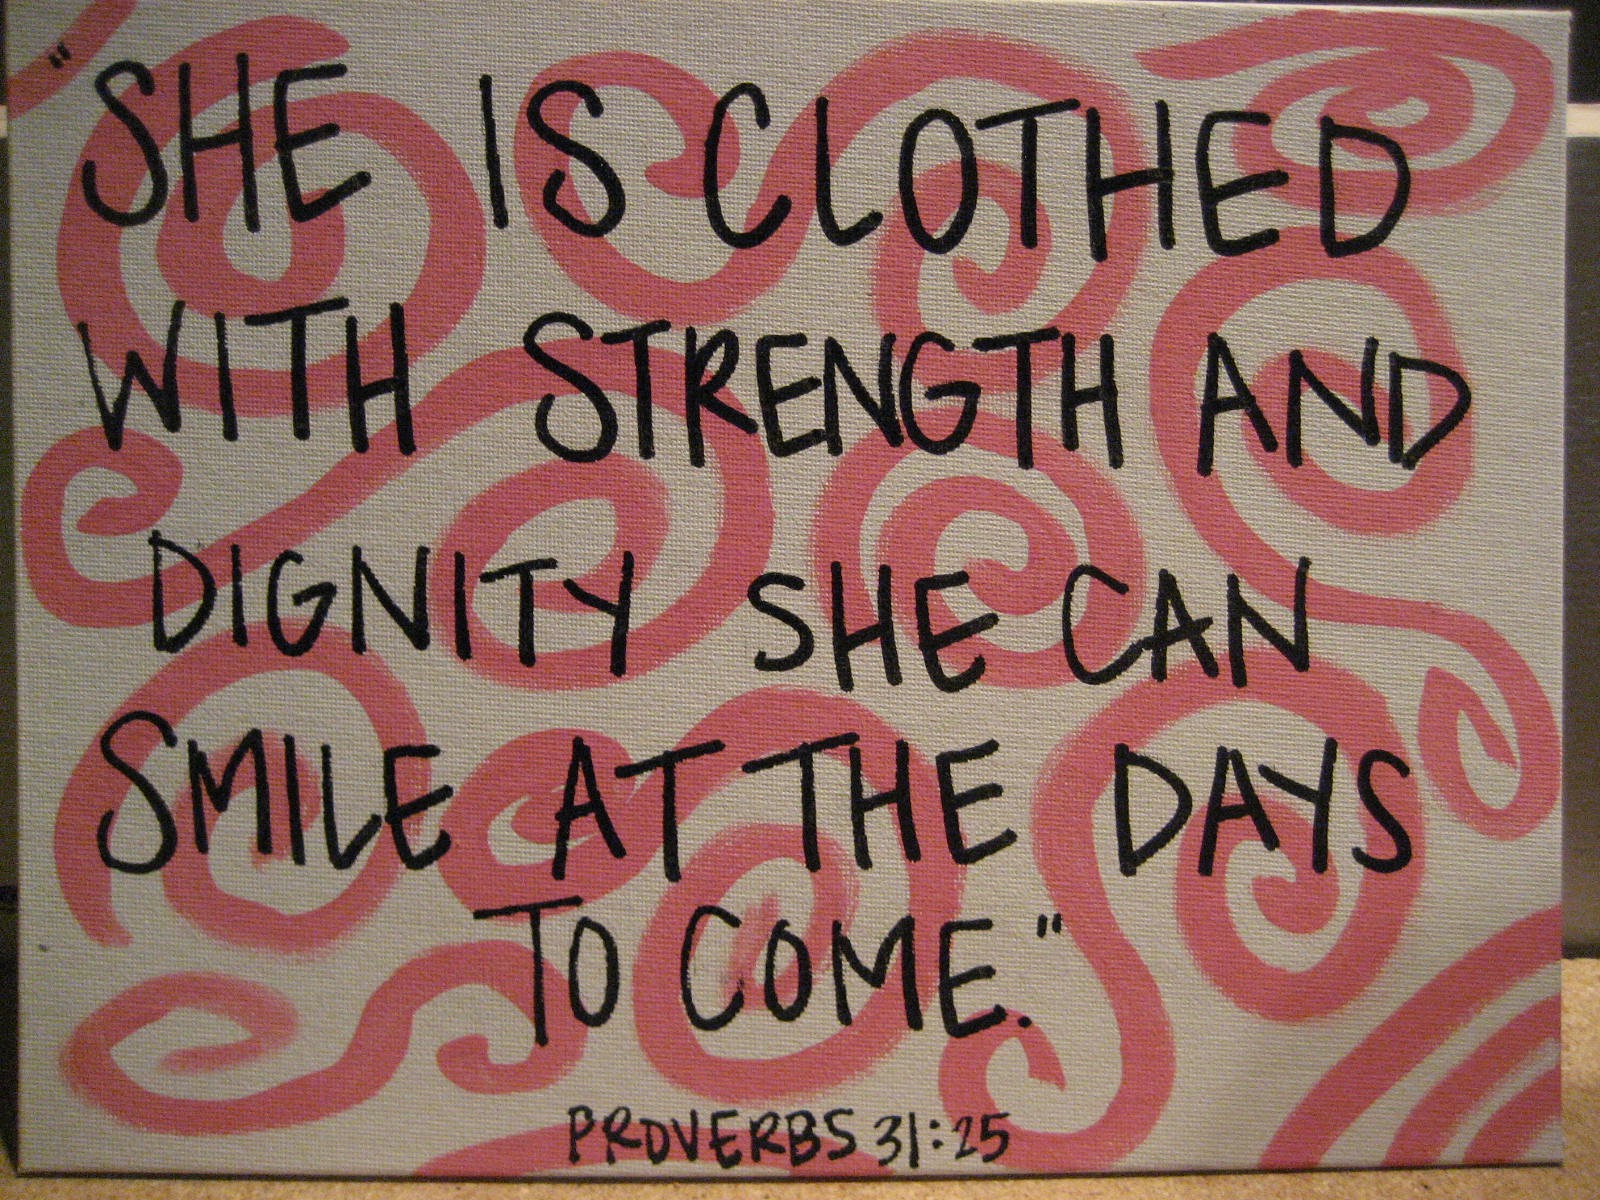 "SHE IS CLOTHED
WITH STRENGTH AND
DIGNITY SHE CAN
SMILE AT THE DAYS
TO COME."
PROVERBS 31:25